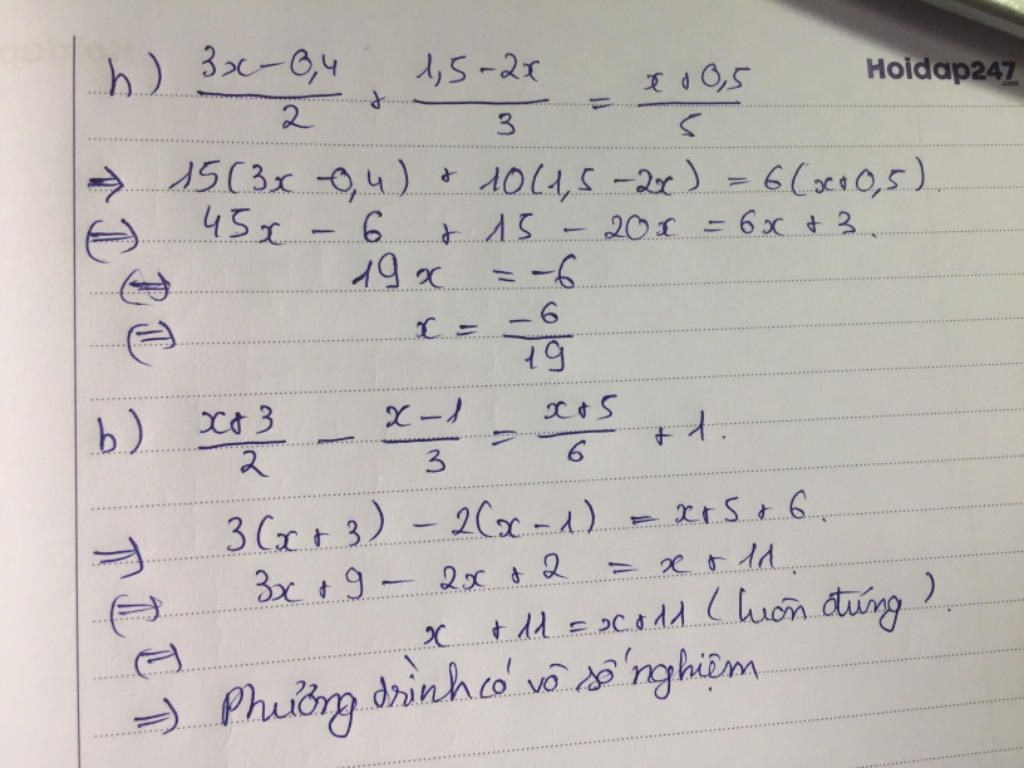 Hoidap247
h) (3x - 0,4)/2 + (1,5 - 2x)/3 = (x + 0,5)/5
⇒ 15(3x - 0,4) + 10(1,5 - 2x) = 6(x + 0,5).
⇔ 45x - 6 + 15 - 20x = 6x + 3.
⇔ 19x = -6
⇔ x = -6/19
b) (x + 3)/2 - (x - 1)/3 = (x + 5)/6 + 1.
⇒ 3(x + 3) - 2(x - 1) = x + 5 + 6.
⇔ 3x + 9 - 2x + 2 = x + 11.
⇔ x + 11 = x + 11 (luôn đúng).
⇒ Phương trình có vô số nghiệm